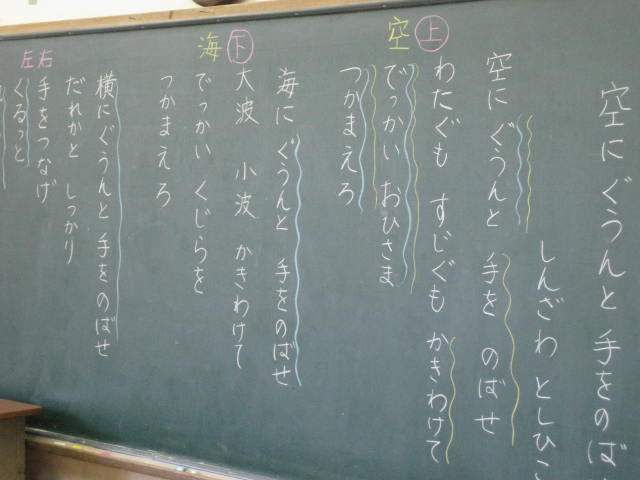 空にぐうんと 手をのば
しんざわ としひこ
空に ぐうんと 手を のばせ
わたぐも すじぐも かきわけて
でっかい おひさま
つかまえろ
海に ぐうんと 手をのばせ
大波 小波 かきわけて
でっかい くじらを
つかまえろ
横に ぐうんと 手をのばせ
だれかと しっかり
手をつなげ
くるっと
上
空
下
海
右
左